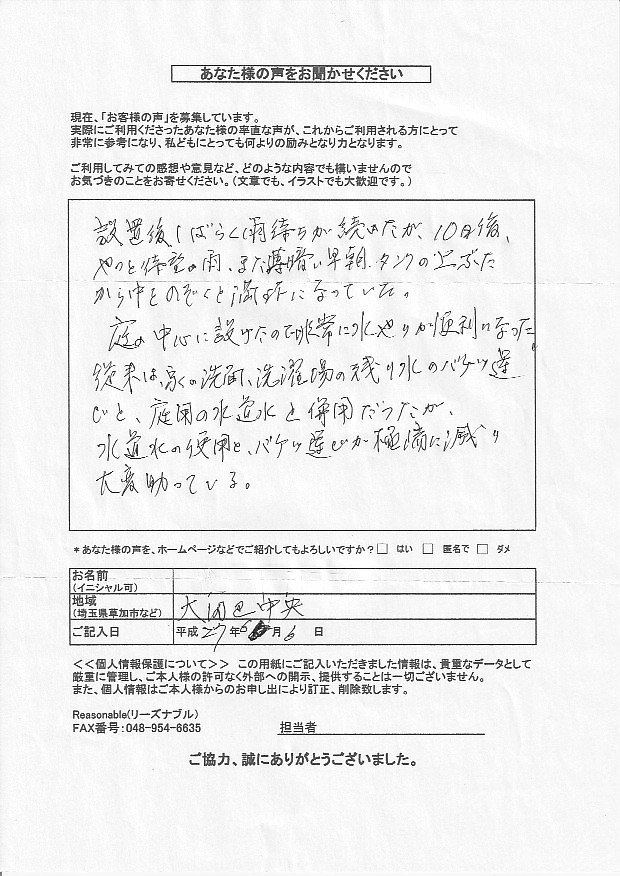 あなた様の声をお聞かせください
現在、「お客様の声」を募集しています。
実際にご利用くださったあなた様の率直な声が、これからご利用される方にとって
非常に参考になり、私どもにとっても何よりの励みとなり力となります。
ご利用してみての感想や意見など、どのような内容でも構いませんので
お気づきのことをお寄せください。(文章でも、イラストでも大歓迎です。)
設置後しばらく雨待ちが続いたが、10日後、
やっと待望の雨、まだ薄暗い早朝、タンクの上ぶた
から中をのぞくと満杯になっていた。
庭の中心に設けたので非常に水やりが便利になった。
従来は、家の洗面、洗濯場の残り水のバケツ運
びと、庭用の水道水と併用だったが、
水道水の使用と、バケツ運びが極端に減り
大変助っている。
*あなた様の声を、ホームページなどでご紹介してもよろしいですか?□ はい □ 匿名で □ ダメ
お名前
(イニシャル可)
地域
(埼玉県草加市など) 中央
ご記入日 平成 27 年 6 月 6 日
<<個人情報保護について>> この用紙にご記入いただきました情報は、貴重なデータとして
厳重に管理し、ご本人様の許可なく外部への開示、提供することは一切ございません。
また、個人情報はご本人様からのお申し出により訂正、削除致します。
Reasonable(リーズナブル)
FAX番号:048-954-6635 担当者
ご協力、誠にありがとうございました。